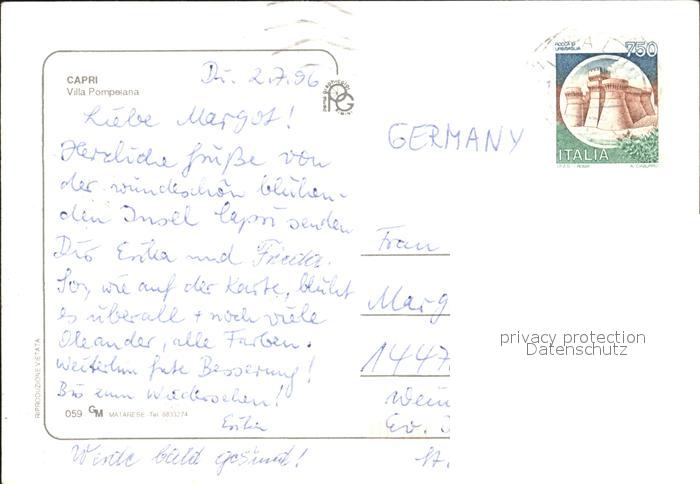 CAPRI
Villa Pompeiana
Di. 2.7.96
Liebe Margot!
Herzliche Grüße von
der wunderschön blühen-
den Insel Capri senden
Dir Erika und Frieda.
So, wie auf der Karte, blüht
es überall + noch viele
Oleander, alle Farben.
Weiterhin gute Besserung!
Bis zum Wiedersehen!
Erika
Werde bald gesund!
059 GM MATARESE - Tel. 8833274
RIPRODUZIONE VIETATA
PG
GERMANY
ROCCA DI
URBISAGLIA
750
ITALIA
I.P.Z.S. - ROMA
Frau
Marg
1447
Wein
Ev.
St.
privacy protection
Datenschutz